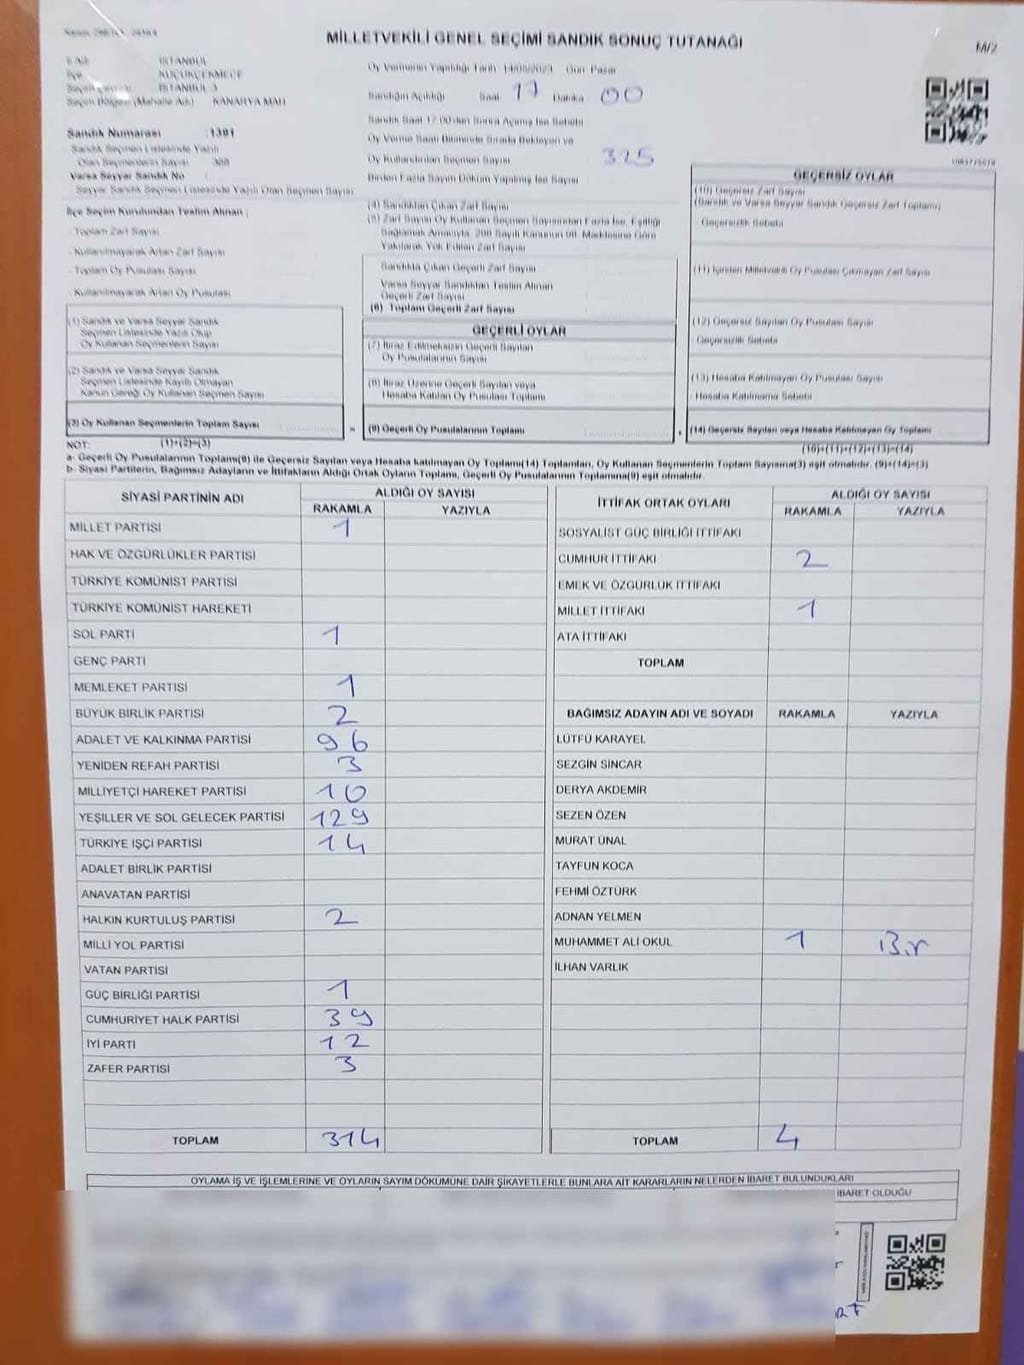 MİLLETVEKİLİ GENEL SEÇİMİ SANDIK SONUÇ TUTANAĞI
M/2
İSTANBUL
KÜÇÜKÇEKMECE
İSTANBUL 3
Seçim Bölgesi (Mahalle Adı) KANARYA MAH
Oy Vermenin Yapıldığı Tarih 14/05/2023 Gün Pazar
Sandığın Açıldığı Saat 17 Dakika 00
Sandık Saat 17:00'den Sonra Açılmış İse Sebebi
Sandık Numarası : 1391
Sandık Seçmen Listesinde Yazılı
Olan Seçmenlerin Sayısı
Oy Verme Saati Bitiminde Sırada Bekleyen ve
Oy Kullandırılan Seçmen Sayısı 325
Varsa Seyyar Sandık No
Seyyar Sandık Seçmen Listesinde Yazılı Olan Seçmen Sayısı
Birden Fazla Sayım Döküm Yapılmış İse Sayısı
İlçe Seçim Kurulundan Teslim Alınan ;
- Toplam Zarf Sayısı
- Kullanılmayarak Artan Zarf Sayısı
- Toplam Oy Pusulası Sayısı
- Kullanılmayarak Artan Oy Pusulası
(1) Sandık ve Varsa Seyyar Sandık
Seçmen Listesinde Yazılı Olup
Oy Kullanan Seçmenlerin Sayısı
(2) Sandık ve Varsa Seyyar Sandık
Seçmen Listesinde Kayıtlı Olmayan
Kanun Gereği Oy Kullanan Seçmen Sayısı
(3) Oy Kullanan Seçmenlerin Toplam Sayısı
(4) Sandıktan Çıkan Zarf Sayısı
(5) Zarf Sayısı Oy Kullanan Seçmen Sayısından Fazla İse, Eşitliği
Sağlamak Amacıyla, 298 Sayılı Kanunun 98. Maddesine Göre
Yakılarak Yok Edilen Zarf Sayısı
Sandıkta Çıkan Geçerli Zarf Sayısı
Varsa Seyyar Sandıktan Teslim Alınan
Geçerli Zarf Sayısı
(6) Toplam Geçerli Zarf Sayısı
GEÇERLİ OYLAR
(7) İtiraz Edilmeksizin Geçerli Sayılan
Oy Pusulalarının Sayısı
(8) İtiraz Üzerine Geçerli Sayılan veya
Hesaba Katılan Oy Pusulası Toplamı
= (9) Geçerli Oy Pusulalarının Toplamı
GEÇERSİZ OYLAR
(10) Geçersiz Zarf Sayısı
(Sandık ve Varsa Seyyar Sandık Geçersiz Zarf Toplamı)
Geçersizlik Sebebi
(11) İçinden Milletvekili Oy Pusulası Çıkmayan Zarf Sayısı
(12) Geçersiz Sayılan Oy Pusulası Sayısı
Geçersizlik Sebebi
(13) Hesaba Katılmayan Oy Pusulası Sayısı
Hesaba Katılmama Sebebi
+ (14) Geçersiz Sayılan veya Hesaba Katılmayan Oy Toplamı
NOT: (1)+(2)=(3) (10)+(11)+(12)+(13)=(14)
a- Geçerli Oy Pusulalarının Toplamı(9) ile Geçersiz Sayılan veya Hesaba katılmayan Oy Toplamı(14) Toplamları, Oy Kullanan Seçmenlerin Toplam Sayısına(3) eşit olmalıdır. (9)+(14)=(3)
b- Siyasi Partilerin, Bağımsız Adayların ve İttifakların Aldığı Ortak Oyların Toplamı, Geçerli Oy Pusulalarının Toplamına(9) eşit olmalıdır.
SİYASİ PARTİNİN ADI ALDIĞI OY SAYISI
RAKAMLA YAZIYLA
MİLLET PARTİSİ 1
HAK VE ÖZGÜRLÜKLER PARTİSİ
TÜRKİYE KOMÜNİST PARTİSİ
TÜRKİYE KOMÜNİST HAREKETİ
SOL PARTİ 1
GENÇ PARTİ
MEMLEKET PARTİSİ 1
BÜYÜK BİRLİK PARTİSİ 2
ADALET VE KALKINMA PARTİSİ 96
YENİDEN REFAH PARTİSİ 3
MİLLİYETÇİ HAREKET PARTİSİ 10
YEŞİLLER VE SOL GELECEK PARTİSİ 129
TÜRKİYE İŞÇİ PARTİSİ 14
ADALET BİRLİK PARTİSİ
ANAVATAN PARTİSİ
HALKIN KURTULUŞ PARTİSİ 2
MİLLİ YOL PARTİSİ
VATAN PARTİSİ
GÜÇ BİRLİĞİ PARTİSİ 1
CUMHURİYET HALK PARTİSİ 39
İYİ PARTİ 12
ZAFER PARTİSİ 3
TOPLAM 314
İTTİFAK ORTAK OYLARI ALDIĞI OY SAYISI
RAKAMLA YAZIYLA
SOSYALİST GÜÇ BİRLİĞİ İTTİFAKI
CUMHUR İTTİFAKI 2
EMEK VE ÖZGÜRLÜK İTTİFAKI
MİLLET İTTİFAKI 1
ATA İTTİFAKI
TOPLAM
BAĞIMSIZ ADAYIN ADI VE SOYADI RAKAMLA YAZIYLA
LÜTFÜ KARAYEL
SEZGİN SİNCAR
DERYA AKDEMİR
SEZEN ÖZEN
MURAT ÜNAL
TAYFUN KOCA
FEHMİ ÖZTÜRK
ADNAN YELMEN
MUHAMMET ALİ OKUL 1 Bir
İLHAN VARLIK
TOPLAM 4
OYLAMA İŞ VE İŞLEMLERİNE VE OYLARIN SAYIM DÖKÜMÜNE DAİR ŞİKAYETLERLE BUNLARA AİT KARARLARIN NELERDEN İBARET BULUNDUKLARI
İBARET OLDUĞU